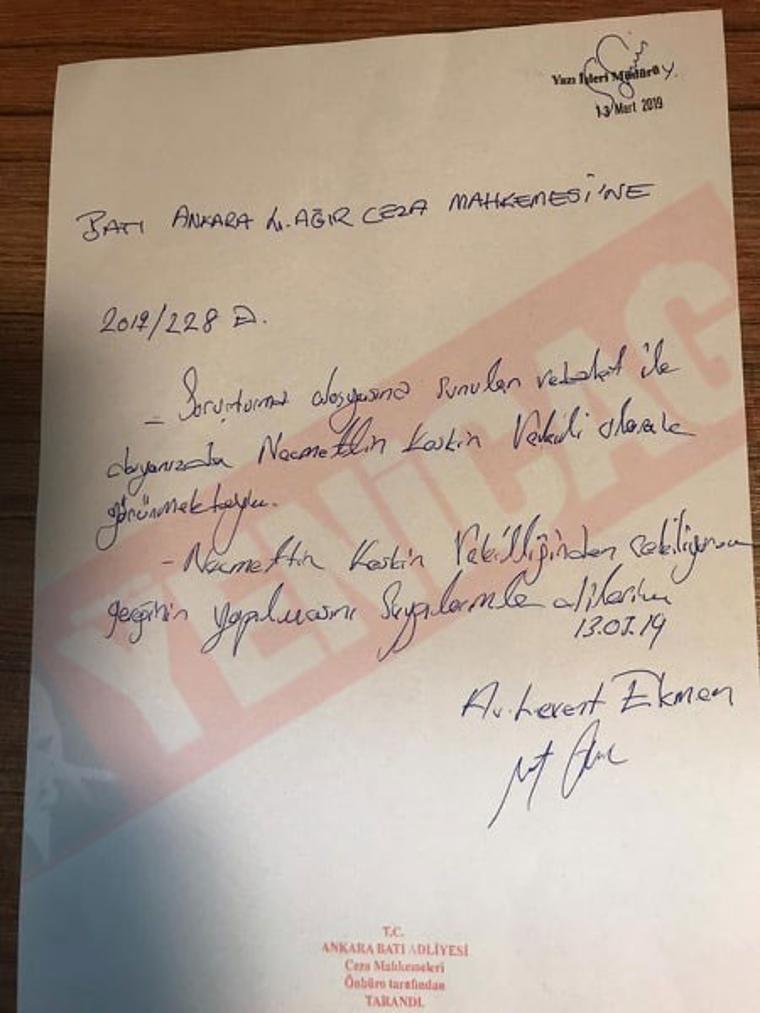 Yazı İşleri Müdürü Y.
13 Mart 2019
BATI ANKARA 4. AĞIR CEZA MAHKEMESİ'NE
2017/228 E.
- Soruşturma dosyasına sunulan vekalet ile
dosyanızda Necmettin Keskin Vekili olarak
görünmekteyiz.
- Necmettin Keskin Vekilliğinden çekiliyorum
gereğinin yapılmasını Saygılarımla dilerim
13.03.19
Av. Levent Ekmen
YENİÇAĞ
T.C.
ANKARA BATI ADLİYESİ
Ceza Mahkemeleri
Önbüro tarafından
TARANDI.